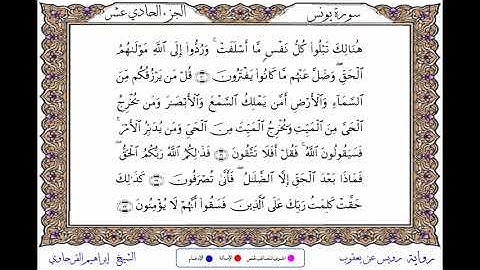 سورة يونس الجزء الحادي عشر
هُنَالِكَ تَبْلُوا۟ كُلُّ نَفْسٍ مَّآ أَسْلَفَتْ ۚ وَرُدُّوٓا۟ إِلَى ٱللَّهِ مَوْلَىٰهُمُ
ٱلْحَقِّ ۖ وَضَلَّ عَنْهُم مَّا كَانُوا۟ يَفْتَرُونَ ۝ قُلْ مَن يَرْزُقُكُم مِّنَ
ٱلسَّمَآءِ وَٱلْأَرْضِ أَمَّن يَمْلِكُ ٱلسَّمْعَ وَٱلْأَبْصَٰرَ وَمَن يُخْرِجُ
ٱلْحَىَّ مِنَ ٱلْمَيِّتِ وَيُخْرِجُ ٱلْمَيِّتَ مِنَ ٱلْحَىِّ وَمَن يُدَبِّرُ ٱلْأَمْرَ ۚ
فَسَيَقُولُونَ ٱللَّهُ ۚ فَقُلْ أَفَلَا تَتَّقُونَ ۝ فَذَٰلِكُمُ ٱللَّهُ رَبُّكُمُ ٱلْحَقُّ ۖ
فَمَاذَا بَعْدَ ٱلْحَقِّ إِلَّا ٱلضَّلَٰلُ ۖ فَأَنَّىٰ تُصْرَفُونَ ۝ كَذَٰلِكَ
حَقَّتْ كَلِمَتُ رَبِّكَ عَلَى ٱلَّذِينَ فَسَقُوٓا۟ أَنَّهُمْ لَا يُؤْمِنُونَ ۝
رواية رويس عن يعقوب الإمالة الإدغام الشيخ إبراهيم القرجاوي